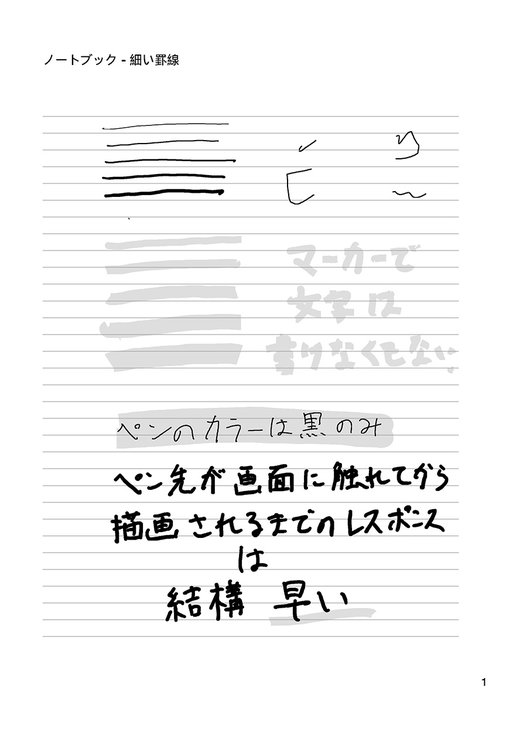 ノートブック - 細い罫線
マーカーで
文字は
書けなくもない。
ペンのカラーは黒のみ
ペン先が画面に触れてから
描画されるまでのレスポンス
は
結構 早い
1